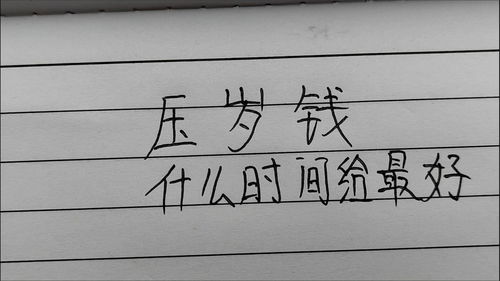 压岁钱
什么时间给最好